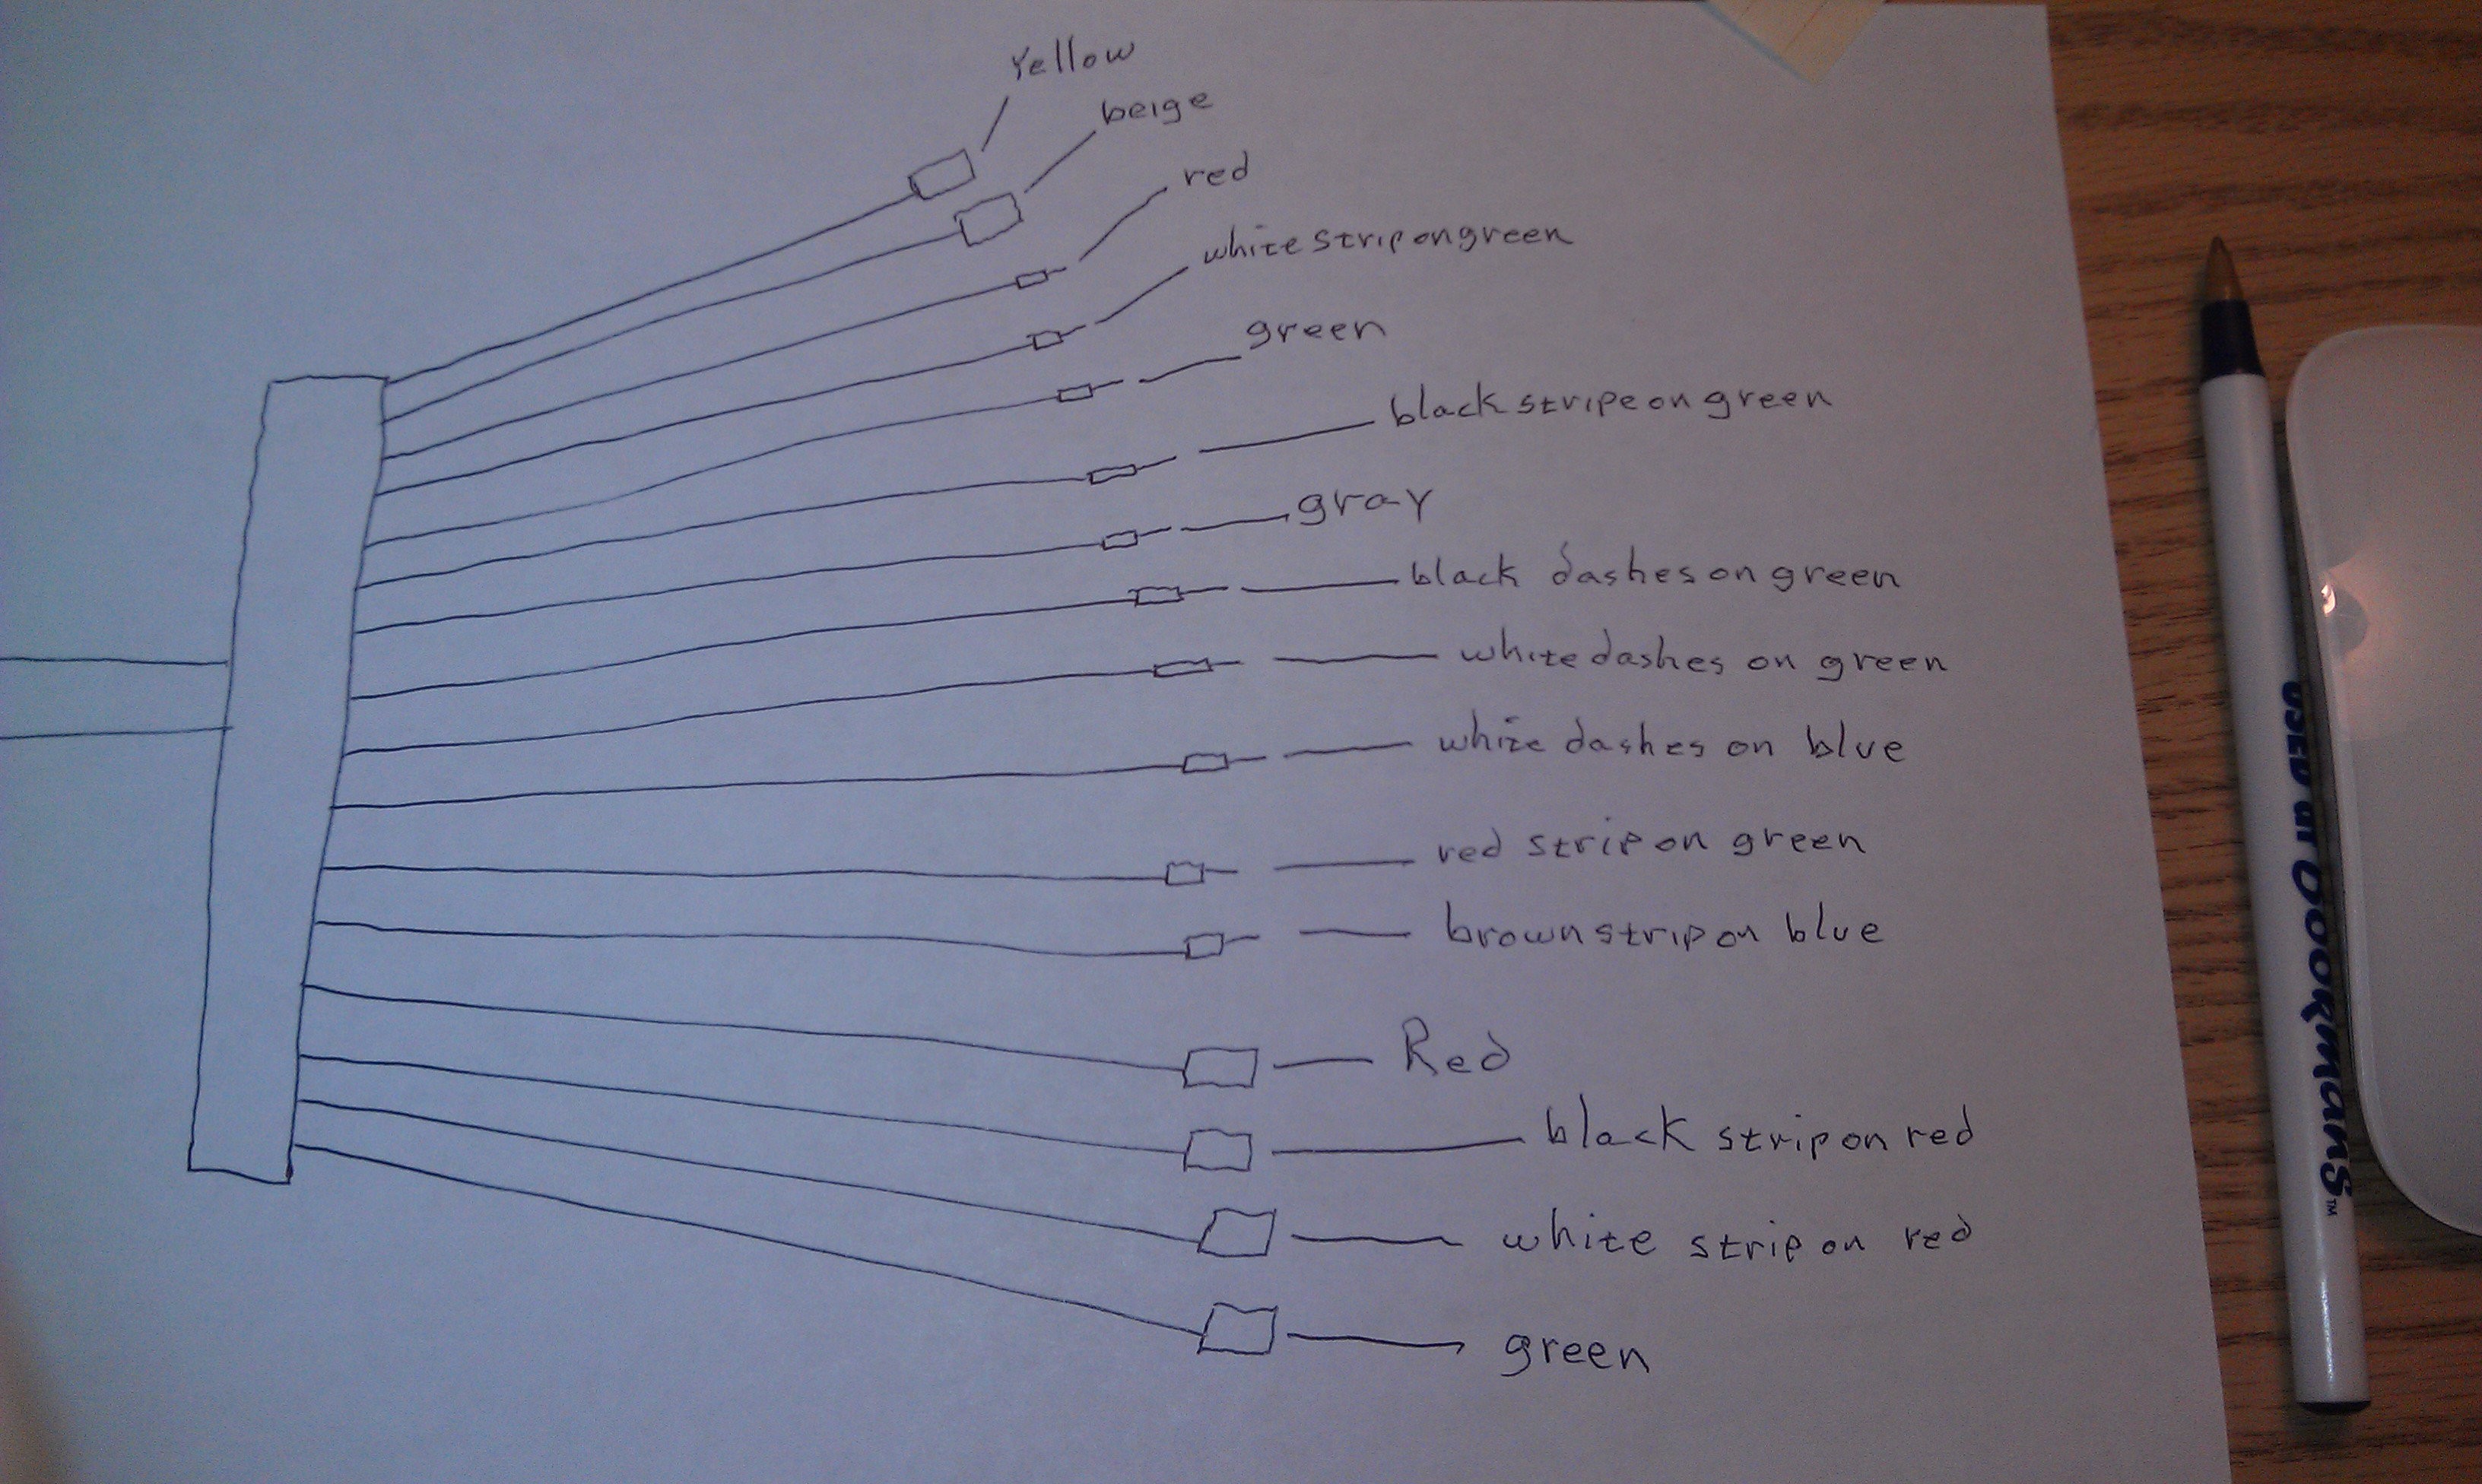 Yellow
beige
red
white strip on green
green
black stripe on green
gray
black dashes on green
white dashes on green
white dashes on blue
red strip on green
brown strip on blue
Red
black strip on red
white strip on red
green
USED at BOOKmans™